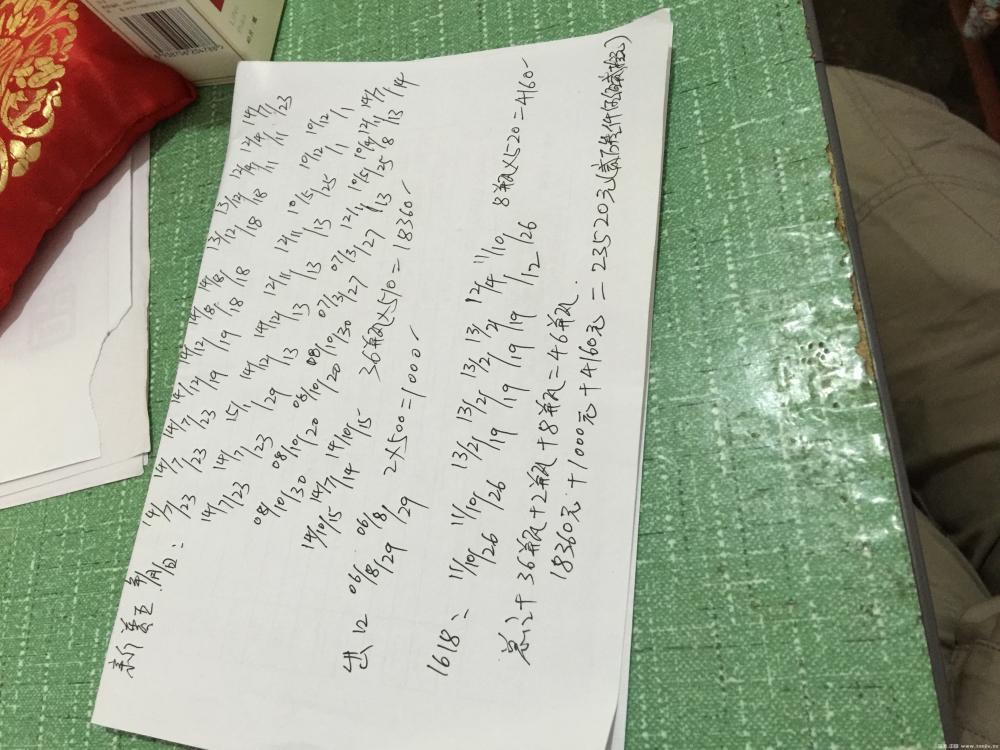 新 普五 年/月/日：
14/7/23 14/7/23 14/7/23 14/12/19 14/12/19 14/8/18 14/8/18 13/12/18 13/12/18 12/4/11 12/4/11 14/7/23
14/7/23 14/7/23 15/1/29 14/12/13 14/12/13 12/11/13 12/11/13 10/5/25 10/12/1 10/12/1
08/10/30 08/10/20 08/10/20 08/10/30 07/3/27 07/3/27 12/11/13 10/5/25 10/4/8 12/1/13 14/7/14
14/10/15 14/7/14 14/10/15 36瓶×510=18360
出12 06/8/29 06/8/29 2×500=1000
1618： 11/10/26 11/10/26 13/2/19 13/2/19 13/2/19 13/2/19 12/4/12 11/10/26 8瓶×520=4160
总计 36瓶+2瓶+8瓶=46瓶.
18360元+1000元+4160元=23520元